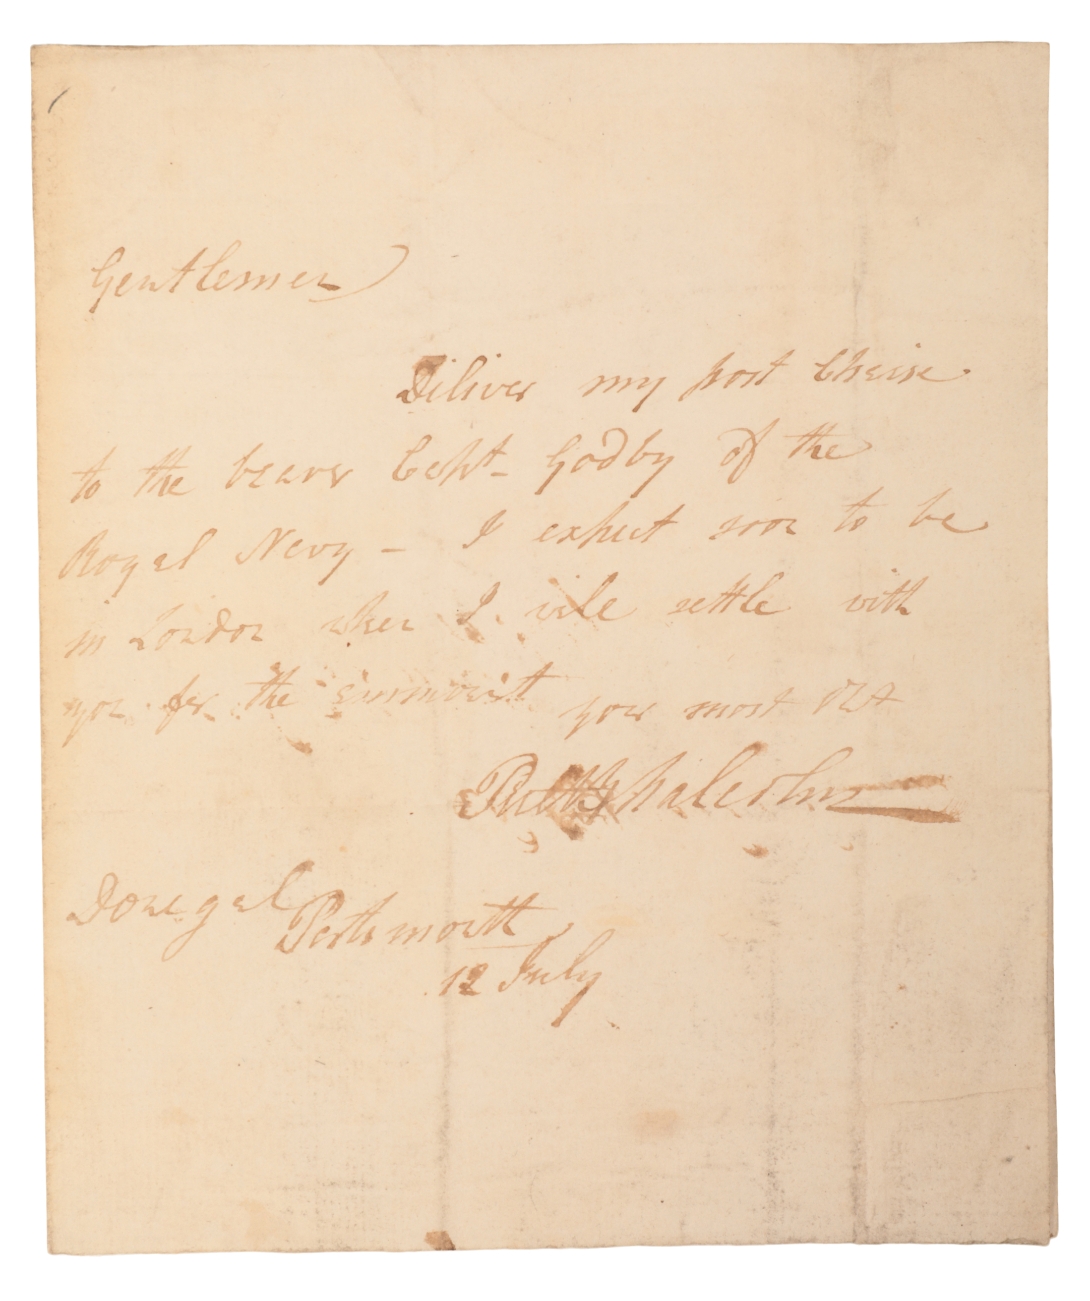 Gentlemen
Diliver my post Chaise
to the bearer Capt- Godby of the
Royal Navy - I expect soon to be
in London when I will settle with
you for the ammount your most Obt
Pult Malcolm
Donegal Portsmouth
12 July